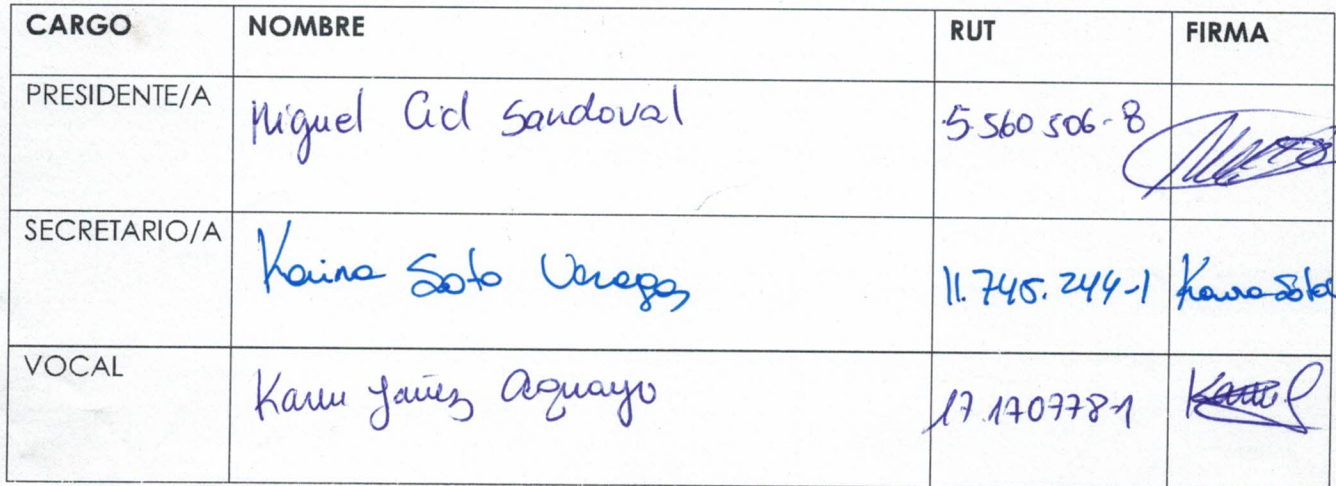 CARGO NOMBRE RUT FIRMA
PRESIDENTE/A Miguel Cid Sandoval 5.560506-8
SECRETARIO/A Kaina Soto 11.745.244-1 Soto
VOCAL Karen Yañez Aguayo 17.170778-1